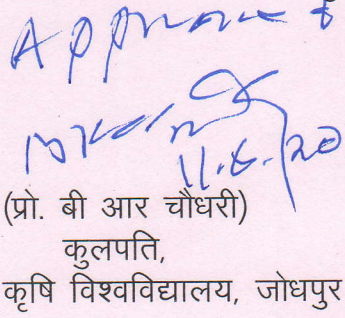 Approved
11.6.20
(प्रो. बी आर चौधरी)
कुलपति,
कृषि विश्वविद्यालय, जोधपुर